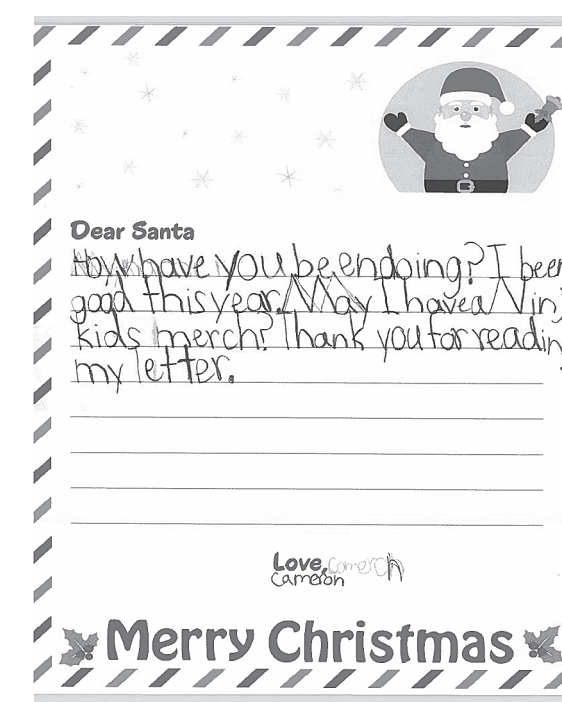 Dear Santa
How have you be en doing? I been
good this year. May I have a Ninj
kids merch? Thank you for readin
my letter.
Love, Cameron
Cameron
Merry Christmas